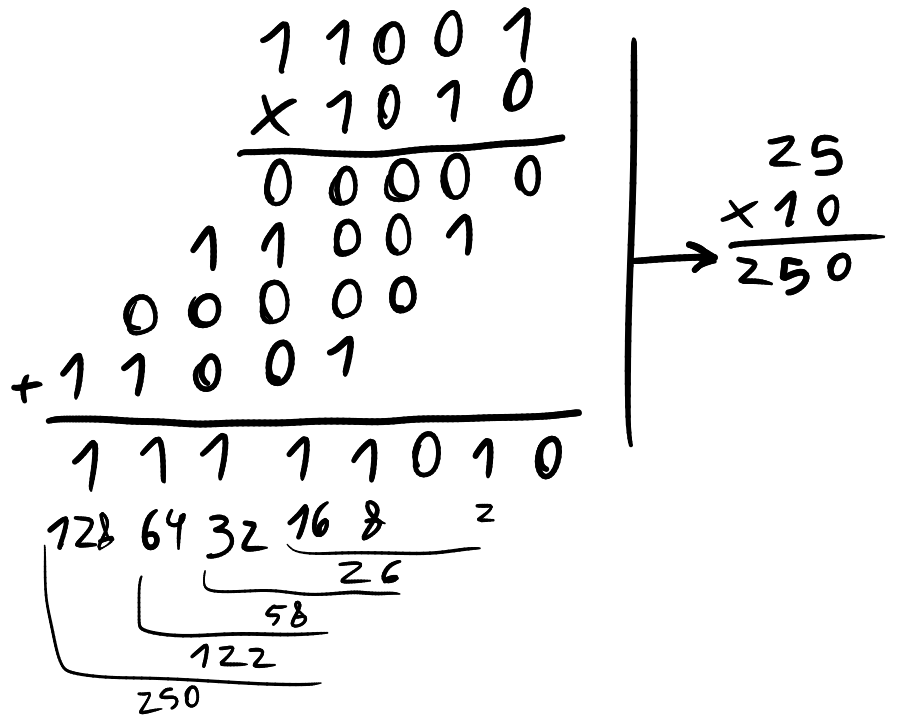 1 1 0 0 1
× 1 0 1 0
0 0 0 0 0
1 1 0 0 1
0 0 0 0 0
+ 1 1 0 0 1
1 1 1 1 1 0 1 0
128 64 32 16 8 2
26
58
122
250
25
× 10
250